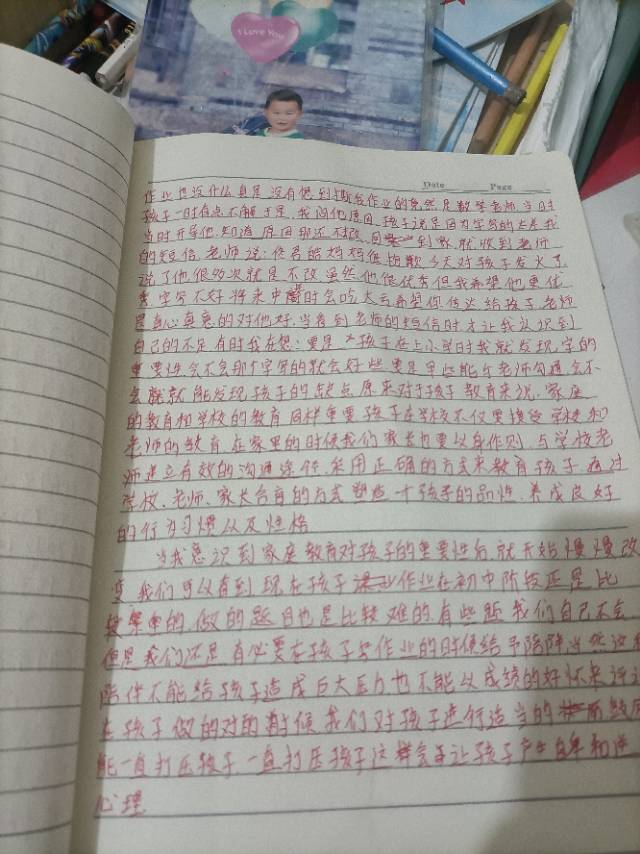 I Love You
Date Page
作业也没什么真是没有想到撕作业的竟然是数学老师当时
孩子一时有点不能于是我问他原因孩子说是因为字写的太差我
当时开导他知道原因那还不改回到家就收到老师
的短信老师说:佟君皓妈妈很抱歉今天对孩子发火了
说了他很多次就是不改虽然他很优秀但我希望他更优
秀字写不好将来中考时会吃大亏希望你传达给孩子老师
是真心真意的对他好当看到老师的短信时才让我认识到
自己的不足有时我在想:要是孩子在上小学时我就发现字的
重要性会不会那个字写的就会好些要是早些能与老师沟通会不
会就能发现孩子的缺点原来对于孩子教育来说家庭
的教育和学校的教育同样重要孩子在学校不仅要接受学校和
老师的教育在家里的时候我们家长也要以身作则与学校老
师建立有效的沟通连件采用正确的方式来教育孩子通过
学校、老师、家长合育的方式塑造一个孩子的品性养成良好
的行为习惯以及性格
当我意识到家庭教育对孩子的重要性后就开始慢慢改
变我们可以看到现在孩子作业在初中阶段还是比
较的做的题目也是比较难的有些题我们自己不会
但是我们还是有必要在孩子写作业的时候给予陪伴当然这种
陪伴不能给孩子造成巨大压力也不能以成绩的好坏来评
在孩子做的对的时候我们对孩子进行适当的
能一直打压孩子一直打压孩子这样会让孩子产生自卑和逆
心理